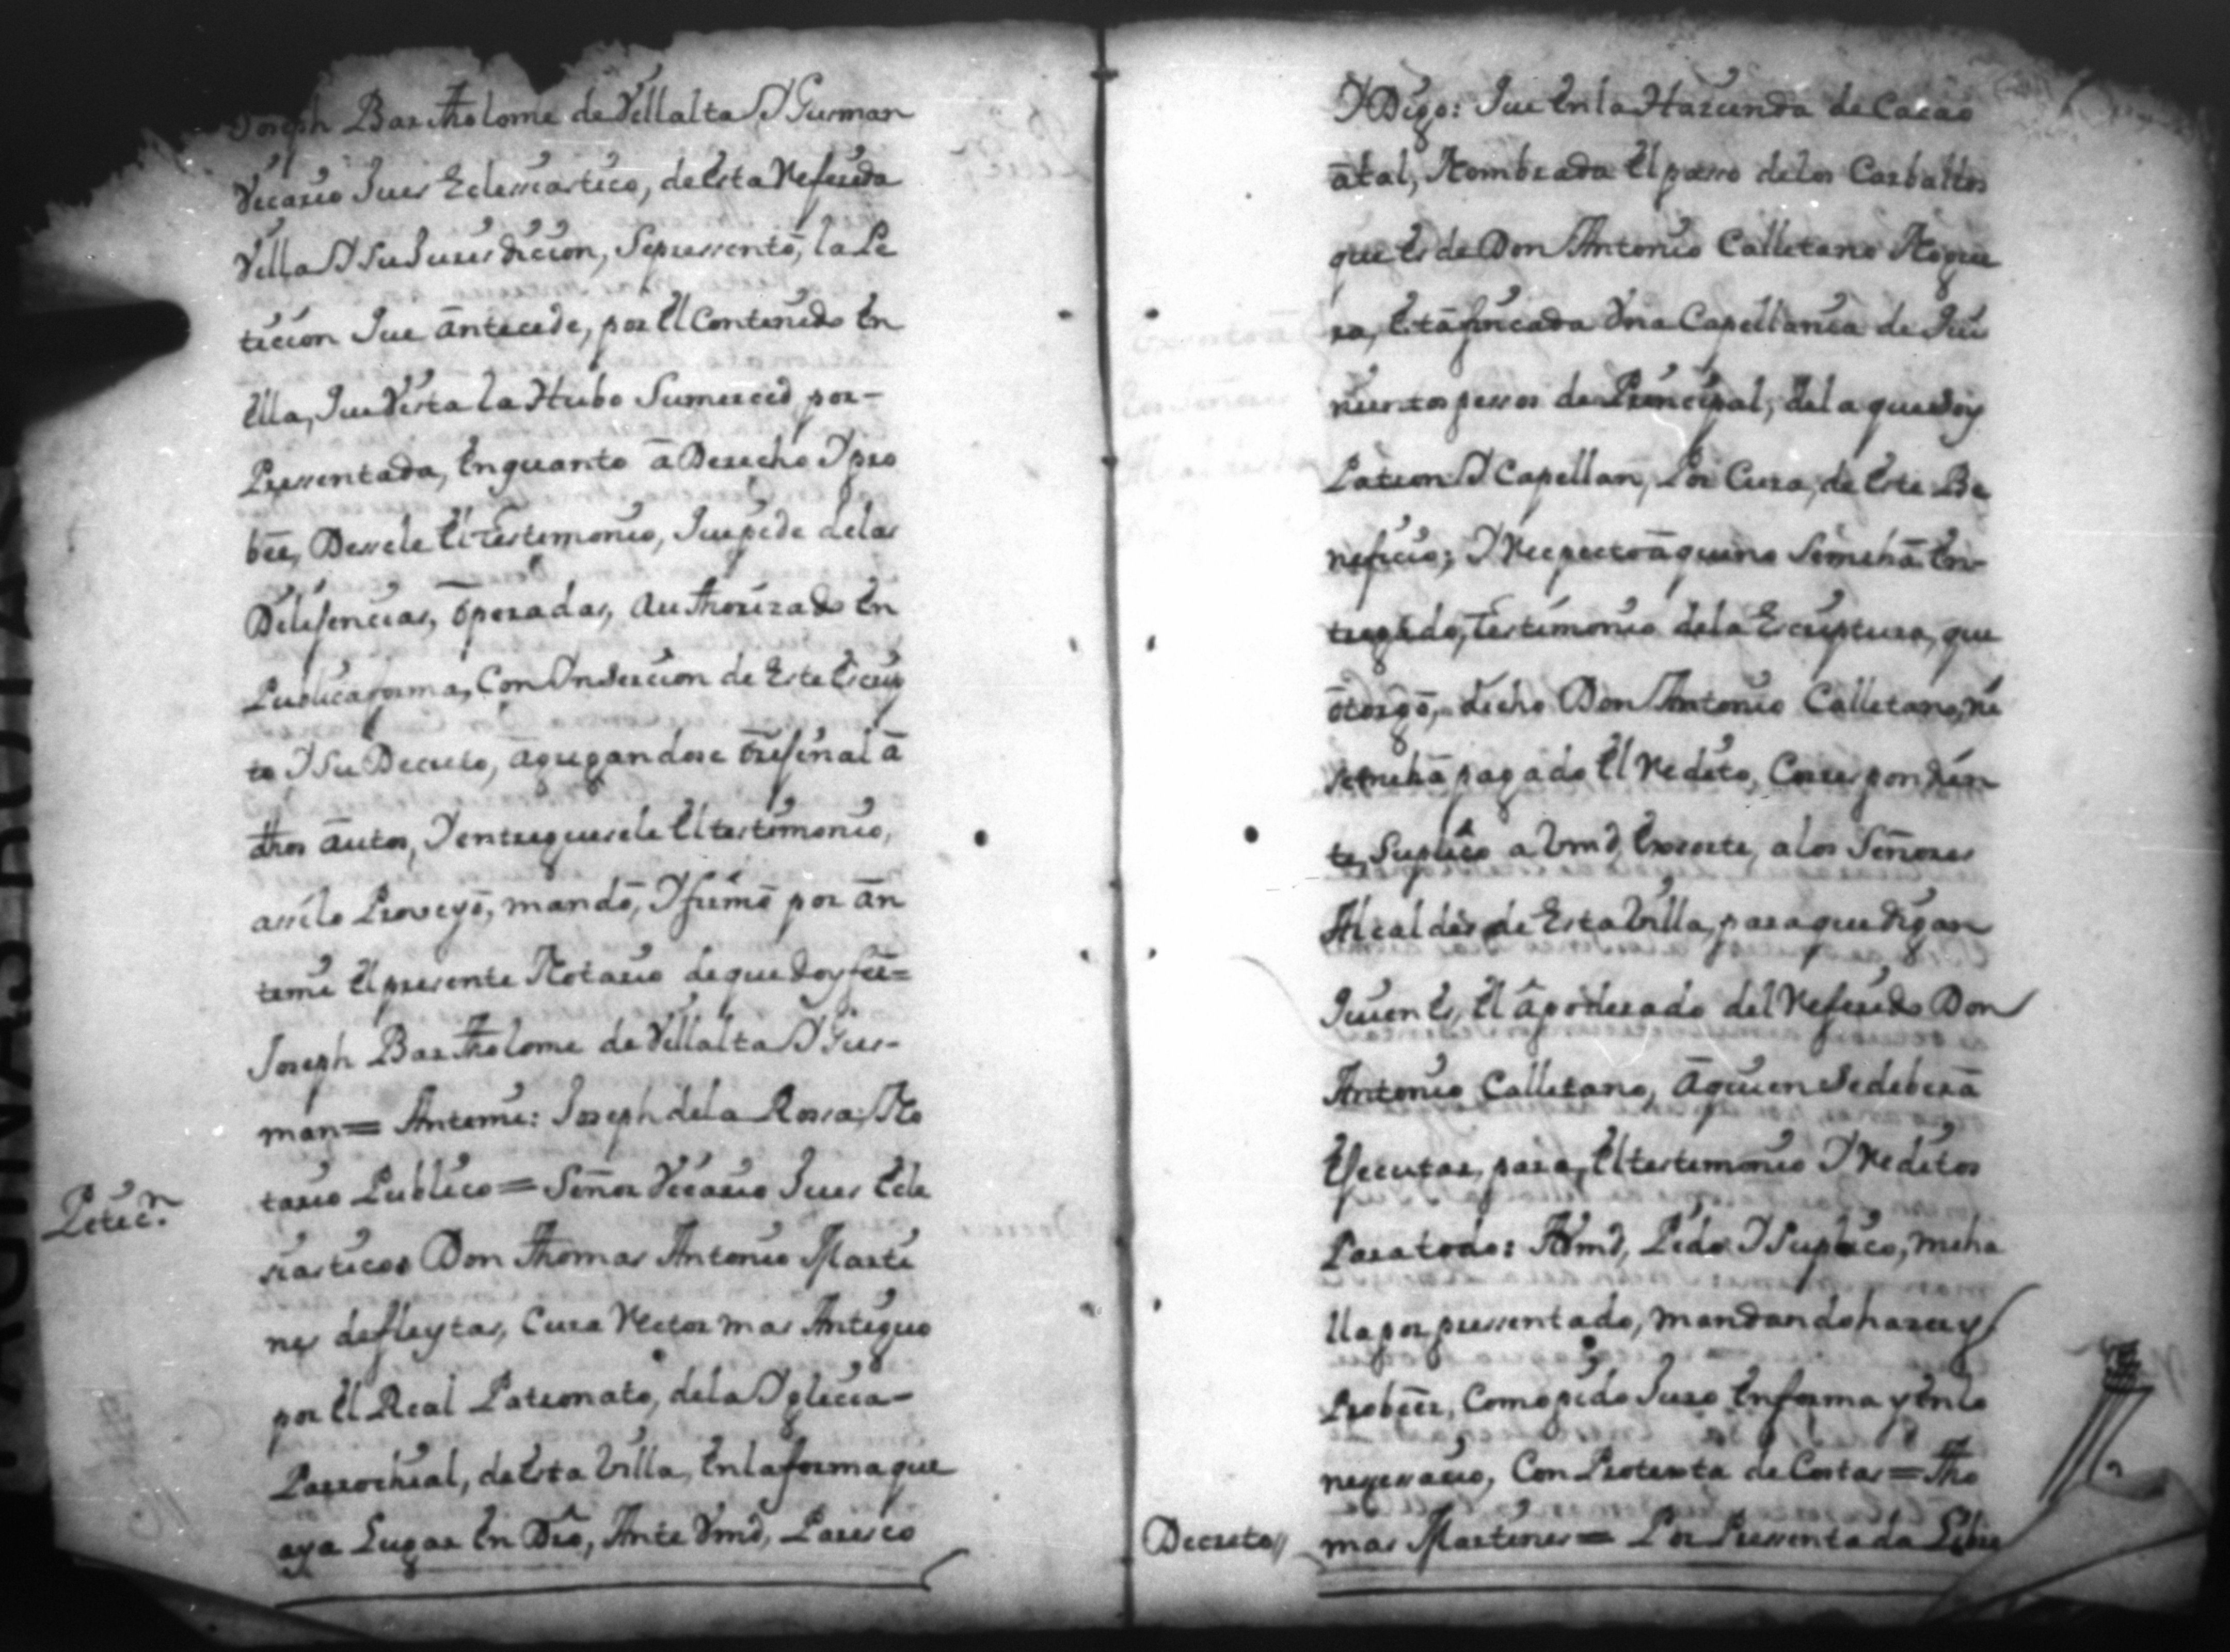 Joseph Bartholome de Villalta Y Gusman
Vicario Jues Eclessiastico, de Esta Referida
Villa Y Su Jurisdiccion, Se pressentò, la Pe
ticion Que ântecede, por El Contenido En
Ella, Que Vista la Hubo Sumerced por-
Pressentada, En quanto â Derecho Y pro
bêe, Dessele El testimonio, Que pide de las
Dilijencias, ôperadas, Authorizado En
Publica forma, Con Ynsercion de Este Escrip
to Y Su Decreto, âgregandose ôrijinal â
dhos âutos, Y entreguesele El testimonio,
assi lo Proveyô, mandô, Y firmô por ân
temi El presente Notario de que doy feê=
Joseph Bartholome de Villalta Y Gus-
man= Antemi: Joseph de la Rossa, No
Petic.n
tario Publico= Señor Vicario Jues Ecle
siastico= Don Thomas Antonio Marti
nes de fleytas, Cura Rector mas Antiguo
por El Real Patronato, de la Yglecia-
Parrochial, de Esta Villa, En la forma que
aya Lugar En Dro, Ante Vmd, Paresco
Y Digo: Que En la Hazienda de Cacao
atal, Nombrada El passo de los Carballos
que Es de Don Antonio Calletano Nogue
ra, Está fincada Vna Capellania de Qui
nientos pessos de Principal, de la que soy
Patron Y Capellan, Por Cura, de Este Be
neficio; Y Respecto â que no Se me hâ En-
tregado, Testimonio de la Escriptura, que
ôtorgô, dicho Don Antonio Calletano, ni
se me hâ pagado El Redito, Correspondien
te, Suplico a Vmd, Exorte, a los Señores
Alcaldes de Esta Villa, para que digan
Quien Es, El âpoderado del Referido Don
Antonio Calletano, â quien Se deberâ
Ejecutar, para, El testimonio Y Reditos
Para todo: A Vmd, Pido Y Suplico, me ha
lla por pressentado, mandando hazer y
Probêer, Como pido Juro En forma y En lo
nezessario, Con Protexta de Costas= Tho
Decreto//
mas Martines= Por Pressentada Libre